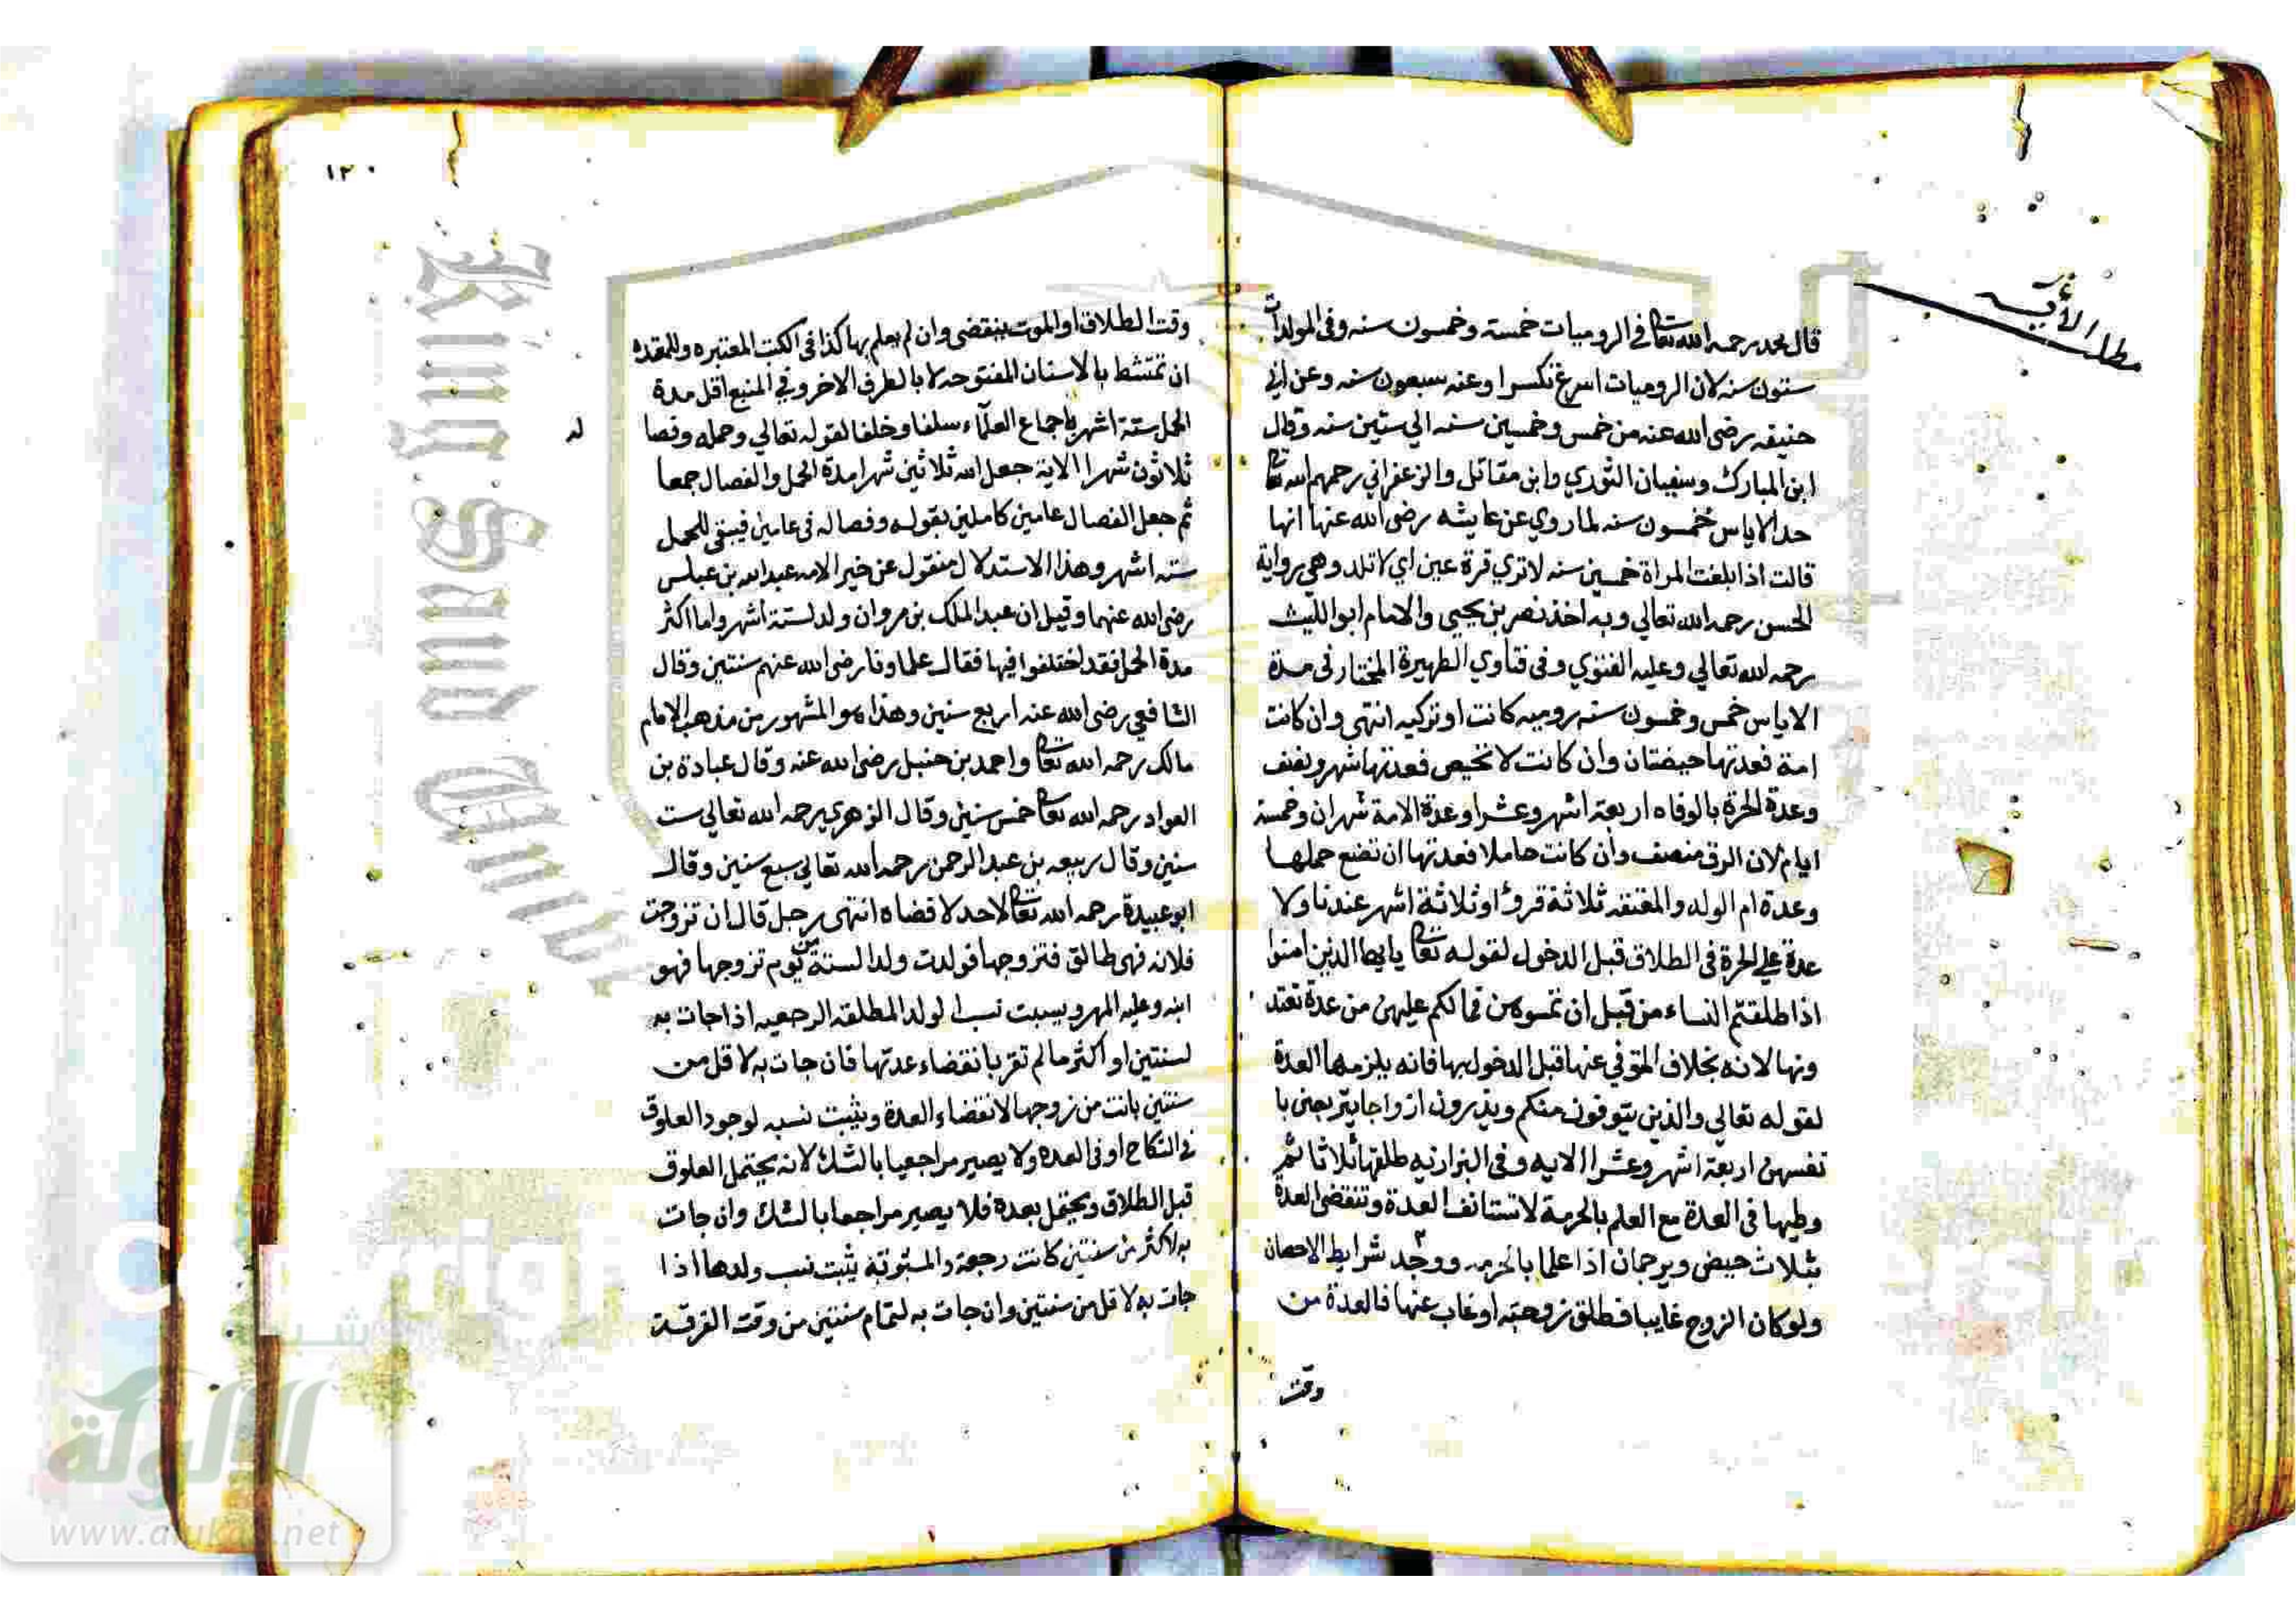 مطلب الآيسة
قال محمد رحمه الله تعالى في الروميات خمسة وخمسون سنه وفي المولدات
ستون سنه لان الروميات اسرع تكسرا وعنه سبعون سنه وعن ابي
حنيفه رضي الله عنه من خمس وخمسين سنه الي ستين سنه وقال
ابن المبارك وسفيان الثوري وابن مقاتل والزعفراني رحمهم الله تعالى
حد الاياس خمسون سنه لما روي عن عايشه رضي الله عنها انها
قالت اذا بلغت المراة خمسين سنه لا تري قرة عين اي لا تلد وهي رواية
الحسن رحمه الله تعالي وبه اخذ نصر بن يحيي والامام ابو الليث
رحمه الله تعالي وعليه الفتوي وفي فتاوي الظهيرة المختار في مدة
الاياس خمس وخمسون سنه روميه كانت او تركيه انتهى وان كانت
امة فعدتها حيضتان وان كانت لا تحيض فعدتها شهر ونصف
وعدة الحرة بالوفاه اربعة اشهر وعشرا وعدة الامة شهران وخمسة
ايام لان الرق منصف وان كانت حاملا فعدتها ان تضع حملها
وعدة ام الولد والمعتقه ثلاثة قروء او ثلاثة اشهر عندنا ولا
عدة علي الحرة في الطلاق قبل الدخول لقوله تعالى يا ايها الذين امنوا
اذا طلقتم النساء من قبل ان تمسوهن فما لكم عليهن من عدة تعتد
ونها لانه بخلاف المتوفي عنها قبل الدخول بها فانه يلزمها العدة
لقوله تعالي والذين يتوفون منكم ويذرون ازواجا يتربصن با
نفسهن اربعة اشهر وعشرا الايه وفي البزازيه طلقها ثلاثا ثم
وطيها في العدة مع العلم بالحرمة لا تستانف العدة وتنقضي العدة
بثلاث حيض ويرجمان اذا علما بالحرمه ووجد شرايط الاحصان
ولو كان الزوج غايبا فطلق زوجته او غاب عنها فالعدة من
وقت
١٢٠
وقت الطلاق او الموت فتنقضي وان لم يعلم بها كذا في الكتب المعتبره وللمعتده
ان تمتشط بالاسنان المفتوحه لا بالطرف الاخر وفي المنبع اقل مدة
الحمل ستة اشهر باجماع العلماء سلفا وخلفا لقوله تعالي وحمله وفصا
له
ثلاثون شهرا الاية جعل الله ثلاثين شهرا مدة الحمل والفصال جمعا
ثم جعل الفصال عامين كاملين بقوله وفصاله في عامين فيبقي للحمل
ستة اشهر وهذا الاستدلال منقول عن خير الامه عبد الله بن عباس
رضي الله عنهما وقيل ان عبد الملك بن مروان ولد لستة اشهر واما اكثر
مدة الحمل فقد اختلفوا فيها فقال علماونا رضي الله عنهم سنتين وقال
الشافعي رضي الله عنه اربع سنين وهذا هو المشهور من مذهب الامام
مالك رحمه الله تعالى واحمد بن حنبل رضي الله عنه وقال عبادة بن
العواد رحمه الله تعالى خمس سنين وقال الزهري رحمه الله تعالي ست
سنين وقال ربيعه بن عبد الرحمن رحمه الله تعالي سبع سنين وقال
ابو عبيدة رحمه الله تعالى لا حد لاقصاه انتهى رجل قال ان تزوجت
فلانه فهي طالق فتزوجها فولدت ولدا لستة من يوم تزوجها فهو
ابنه وعليه المهر ويسبت نسب الولد المطلقه الرجعيه اذا جات به
لسنتين او اكثر ما لم تقر بانقضاء عدتها فان جات به لاقل من
سنتين بانت من زوجها لانقضاء العدة ويثبت نسبه لوجود العلوق
في النكاح او في العده ولا يصير مراجعيا بالشك لانه يحتمل العلوق
قبل الطلاق ويحتمل بعدة فلا يصير مراجعا بالشك وان جات
به لاكثر من سنتين كانت رجعة والمبتوتة يثبت نسب ولدها اذا
جات به لاقل من سنتين وان جات به لتمام سنتين من وقت الفرقة
King Saud Univ
شبكة
الألوكة
www.alukah.net